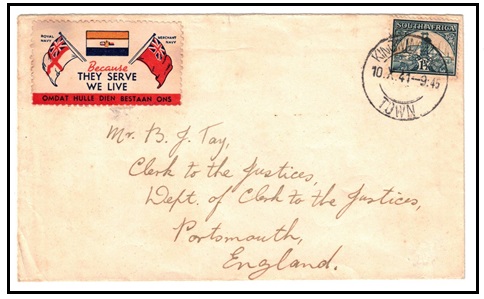 ROYAL NAVY
MERCHANT NAVY
Because
THEY SERVE
WE LIVE
OMDAT HULLE DIEN BESTAAN ONS
SOUTH AFRICA
10. X. 41 — 9.45
TOWN
Mr. B. J. Tay,
Clerk to the Justices,
Dept. of Clerk to the Justices,
Portsmouth,
England.